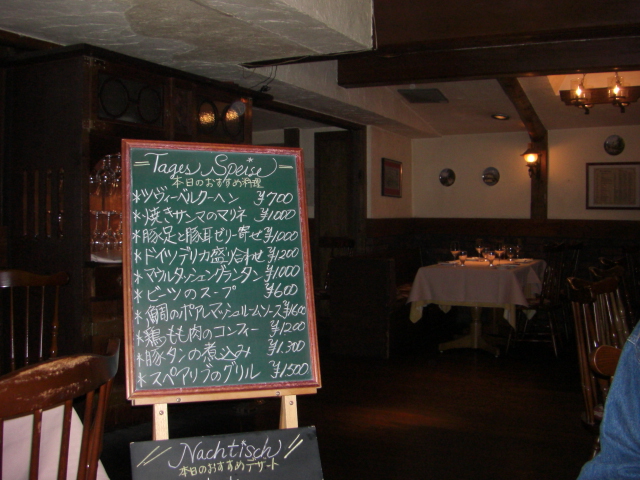 =Tages Speise=
本日のおすすめ料理
*ツヴィーベルクーヘン ¥700
*焼きサンマのマリネ ¥1000
*豚足と豚耳ゼリー寄せ ¥1000
*ドイツデリカ盛り合わせ ¥1200
*マウルタッシェングラタン ¥1000
*ビーツのスープ ¥600
*鯛のポアレマッシュルームソース ¥1600
*鶏もも肉のコンフィー ¥1200
*豚タンの煮込み ¥1.300
*スペアリブのグリル ¥1500
Nachtisch
本日のおすすめデザート